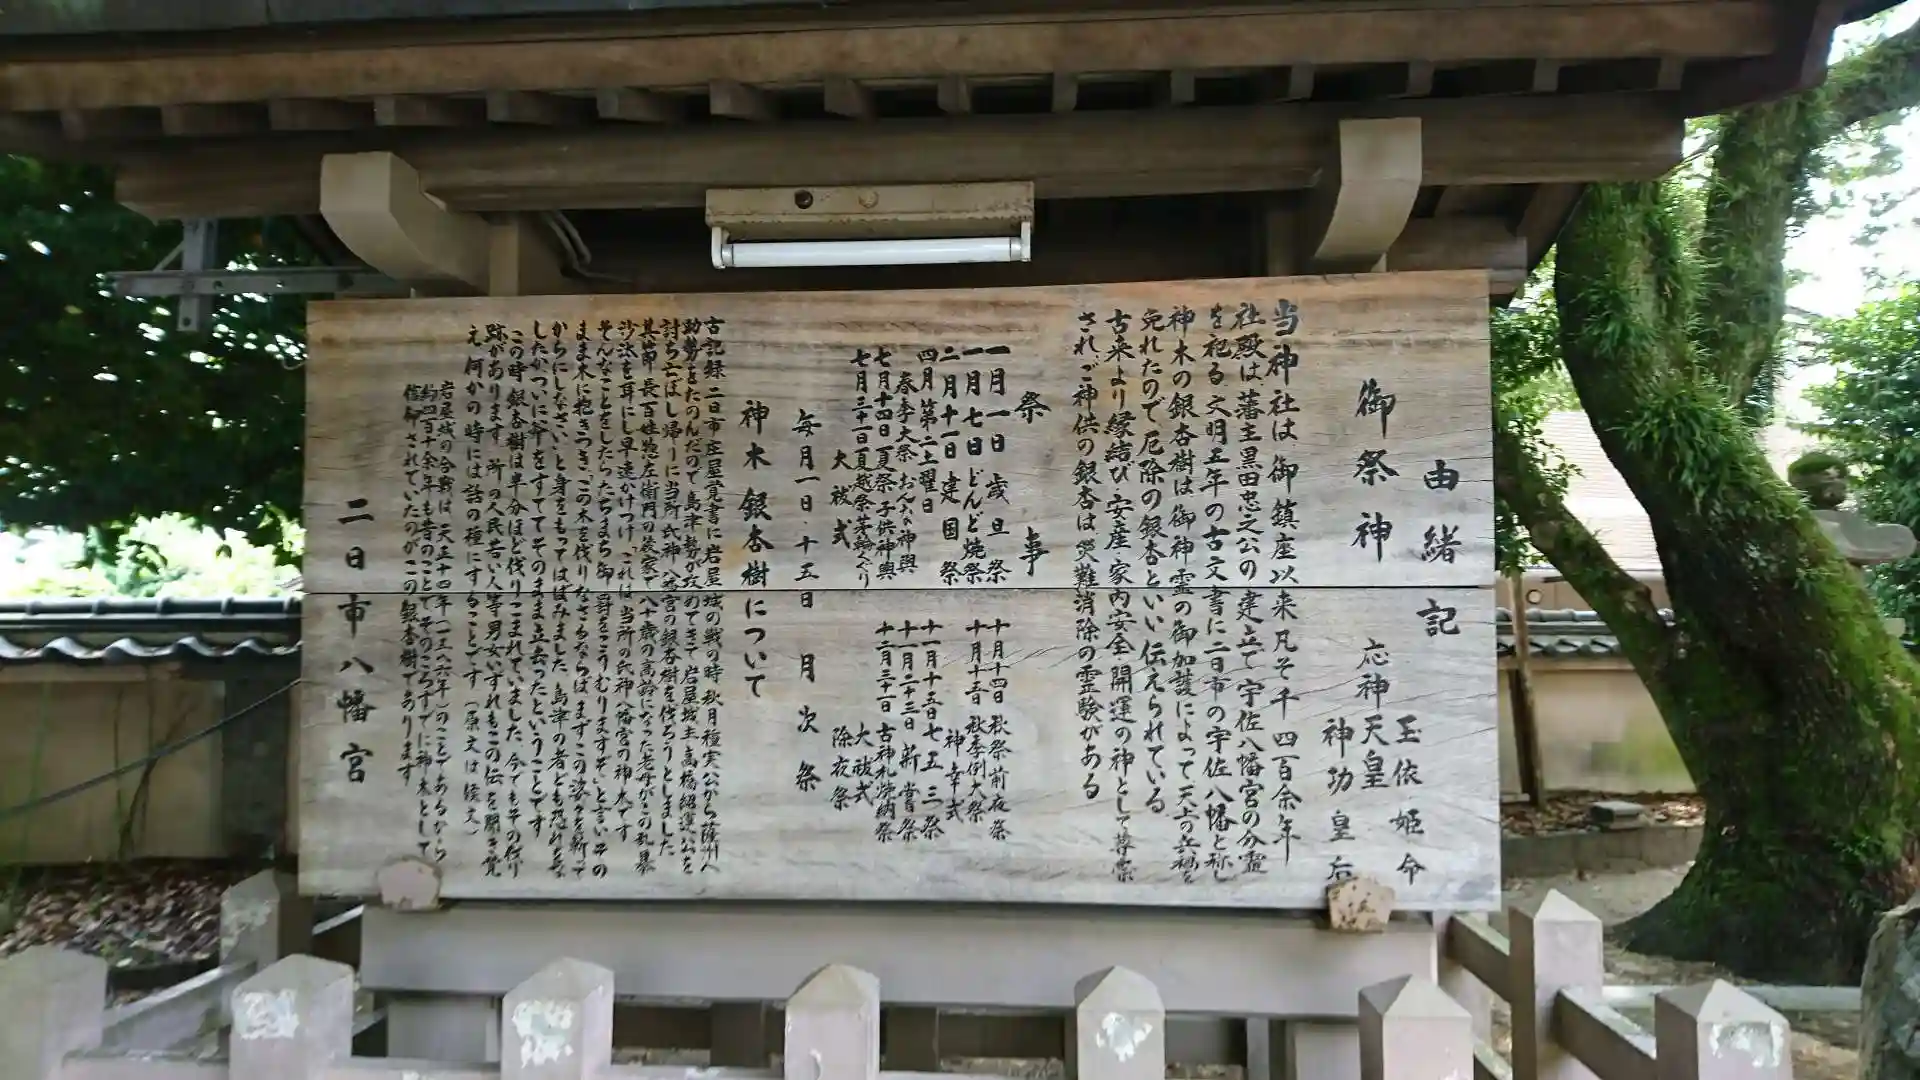 由緒記
御祭神
玉依姫命
応神天皇
神功皇后
当神社は御鎮座以来凡そ千四百余年
社殿は、藩主黒田忠之公の建立で宇佐八幡宮の分霊
を祀る文明五年の古文書に二日市の宇佐八幡と称し
神木の銀杏樹は御神霊の御加護によって天上の兵禍を
免れたので厄除の銀杏といい伝えられている
古来より縁結び・安産・家内安全・開運の神として尊崇
され、ご神供の銀杏は、災難消除の霊験がある
祭事
一月一日 歳旦祭
一月七日 どんど焼祭
二月十一日 建国祭
四月第二土曜日
春季大祭 おんな神輿
七月十四日 夏祭 子供神輿
七月三十一日 夏越祭 茅輪くぐり
大祓式
十月十四日 秋祭前夜祭
十月十五日 秋季例大祭
神幸式
十一月十五日 七五三祭
十一月二十三日 新嘗祭
十二月三十一日 古神札焼納祭
大祓式
除夜祭
毎月一日・十五日 月次祭
神木銀杏樹について
古記録 二日市庄屋覚書に岩屋城の戦の時秋月種実公から薩州へ
助勢をたのんだので島津勢が攻めてきて岩屋城主高橋紹運公を
討ち亡ぼし帰りに当所氏神八幡宮の銀杏樹を伐ろうとしました
其節 長百姓惣左衛門の後家で八十歳の高齢になった老母がこの乱暴
沙汰を耳にし早速かけつけ これは当所の氏神八幡宮の神木です
そんなことをしたらたちまち御罰をこうむりますぞ」と言いその
まま木に抱きつき「この木を伐りなさるならば、まずこの婆々を斬って
からにしなさい」と身をもってはばみました 島津の者どもも恐れをな
したか、ついに斧をすててそのまま立去ったということです
この時銀杏樹は半分ほど伐りこまれていました 今でもその伐り
跡があります 所の人民若い人等男女いずれもこの伝を聞き覚
え 何かの時には話の種にすることです(原文は候文)
岩屋城の合戦は 天正十四年(一五八六年)のことであるなら
約四百十余年も昔のことでそのころすでに神木として
信仰されていたのがこの銀杏樹であります
二日市八幡宮